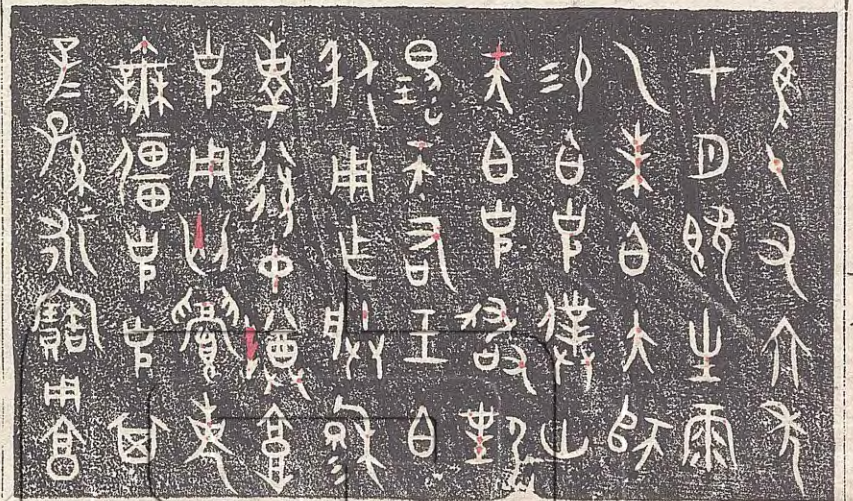 隹十又六年
七月既生霸
乙未白大師
易白克僕卅
夫白克敢對
揚天右王白
友用乍朕穆
考後中尊
克用匄眉老
無疆克克其
子=孫=永寶用享